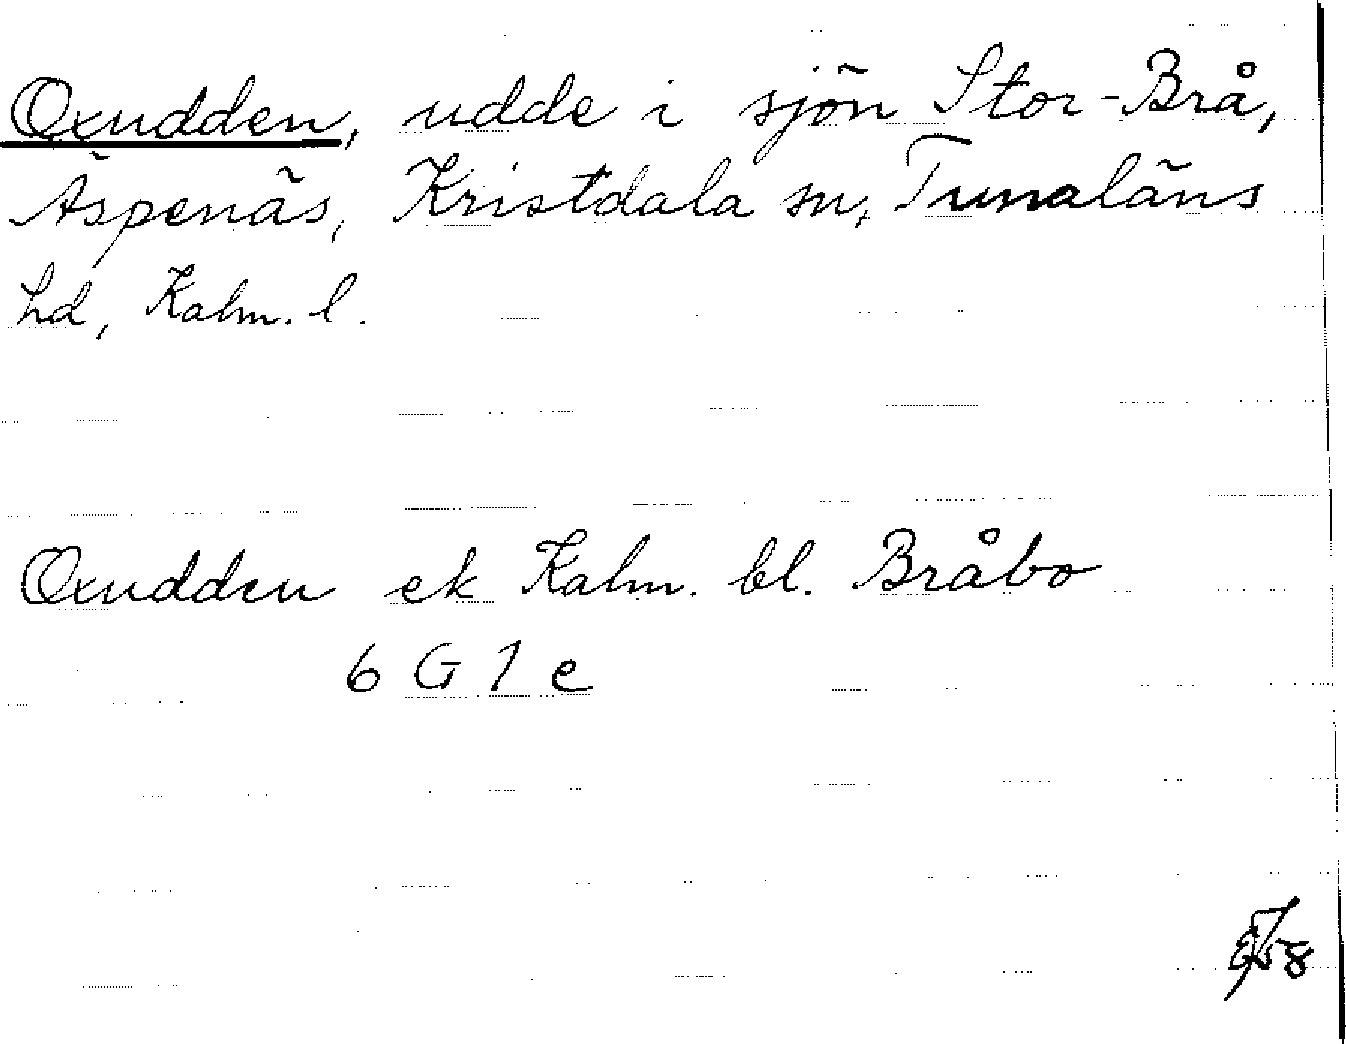 Oxudden, udde i sjön Stor-Brå,
Äspenäs, Kristdala sn, Tunaläns
hd, Kalm. l.
Oxudden ek Kalm. bl. Bråbo
6 G 1 e